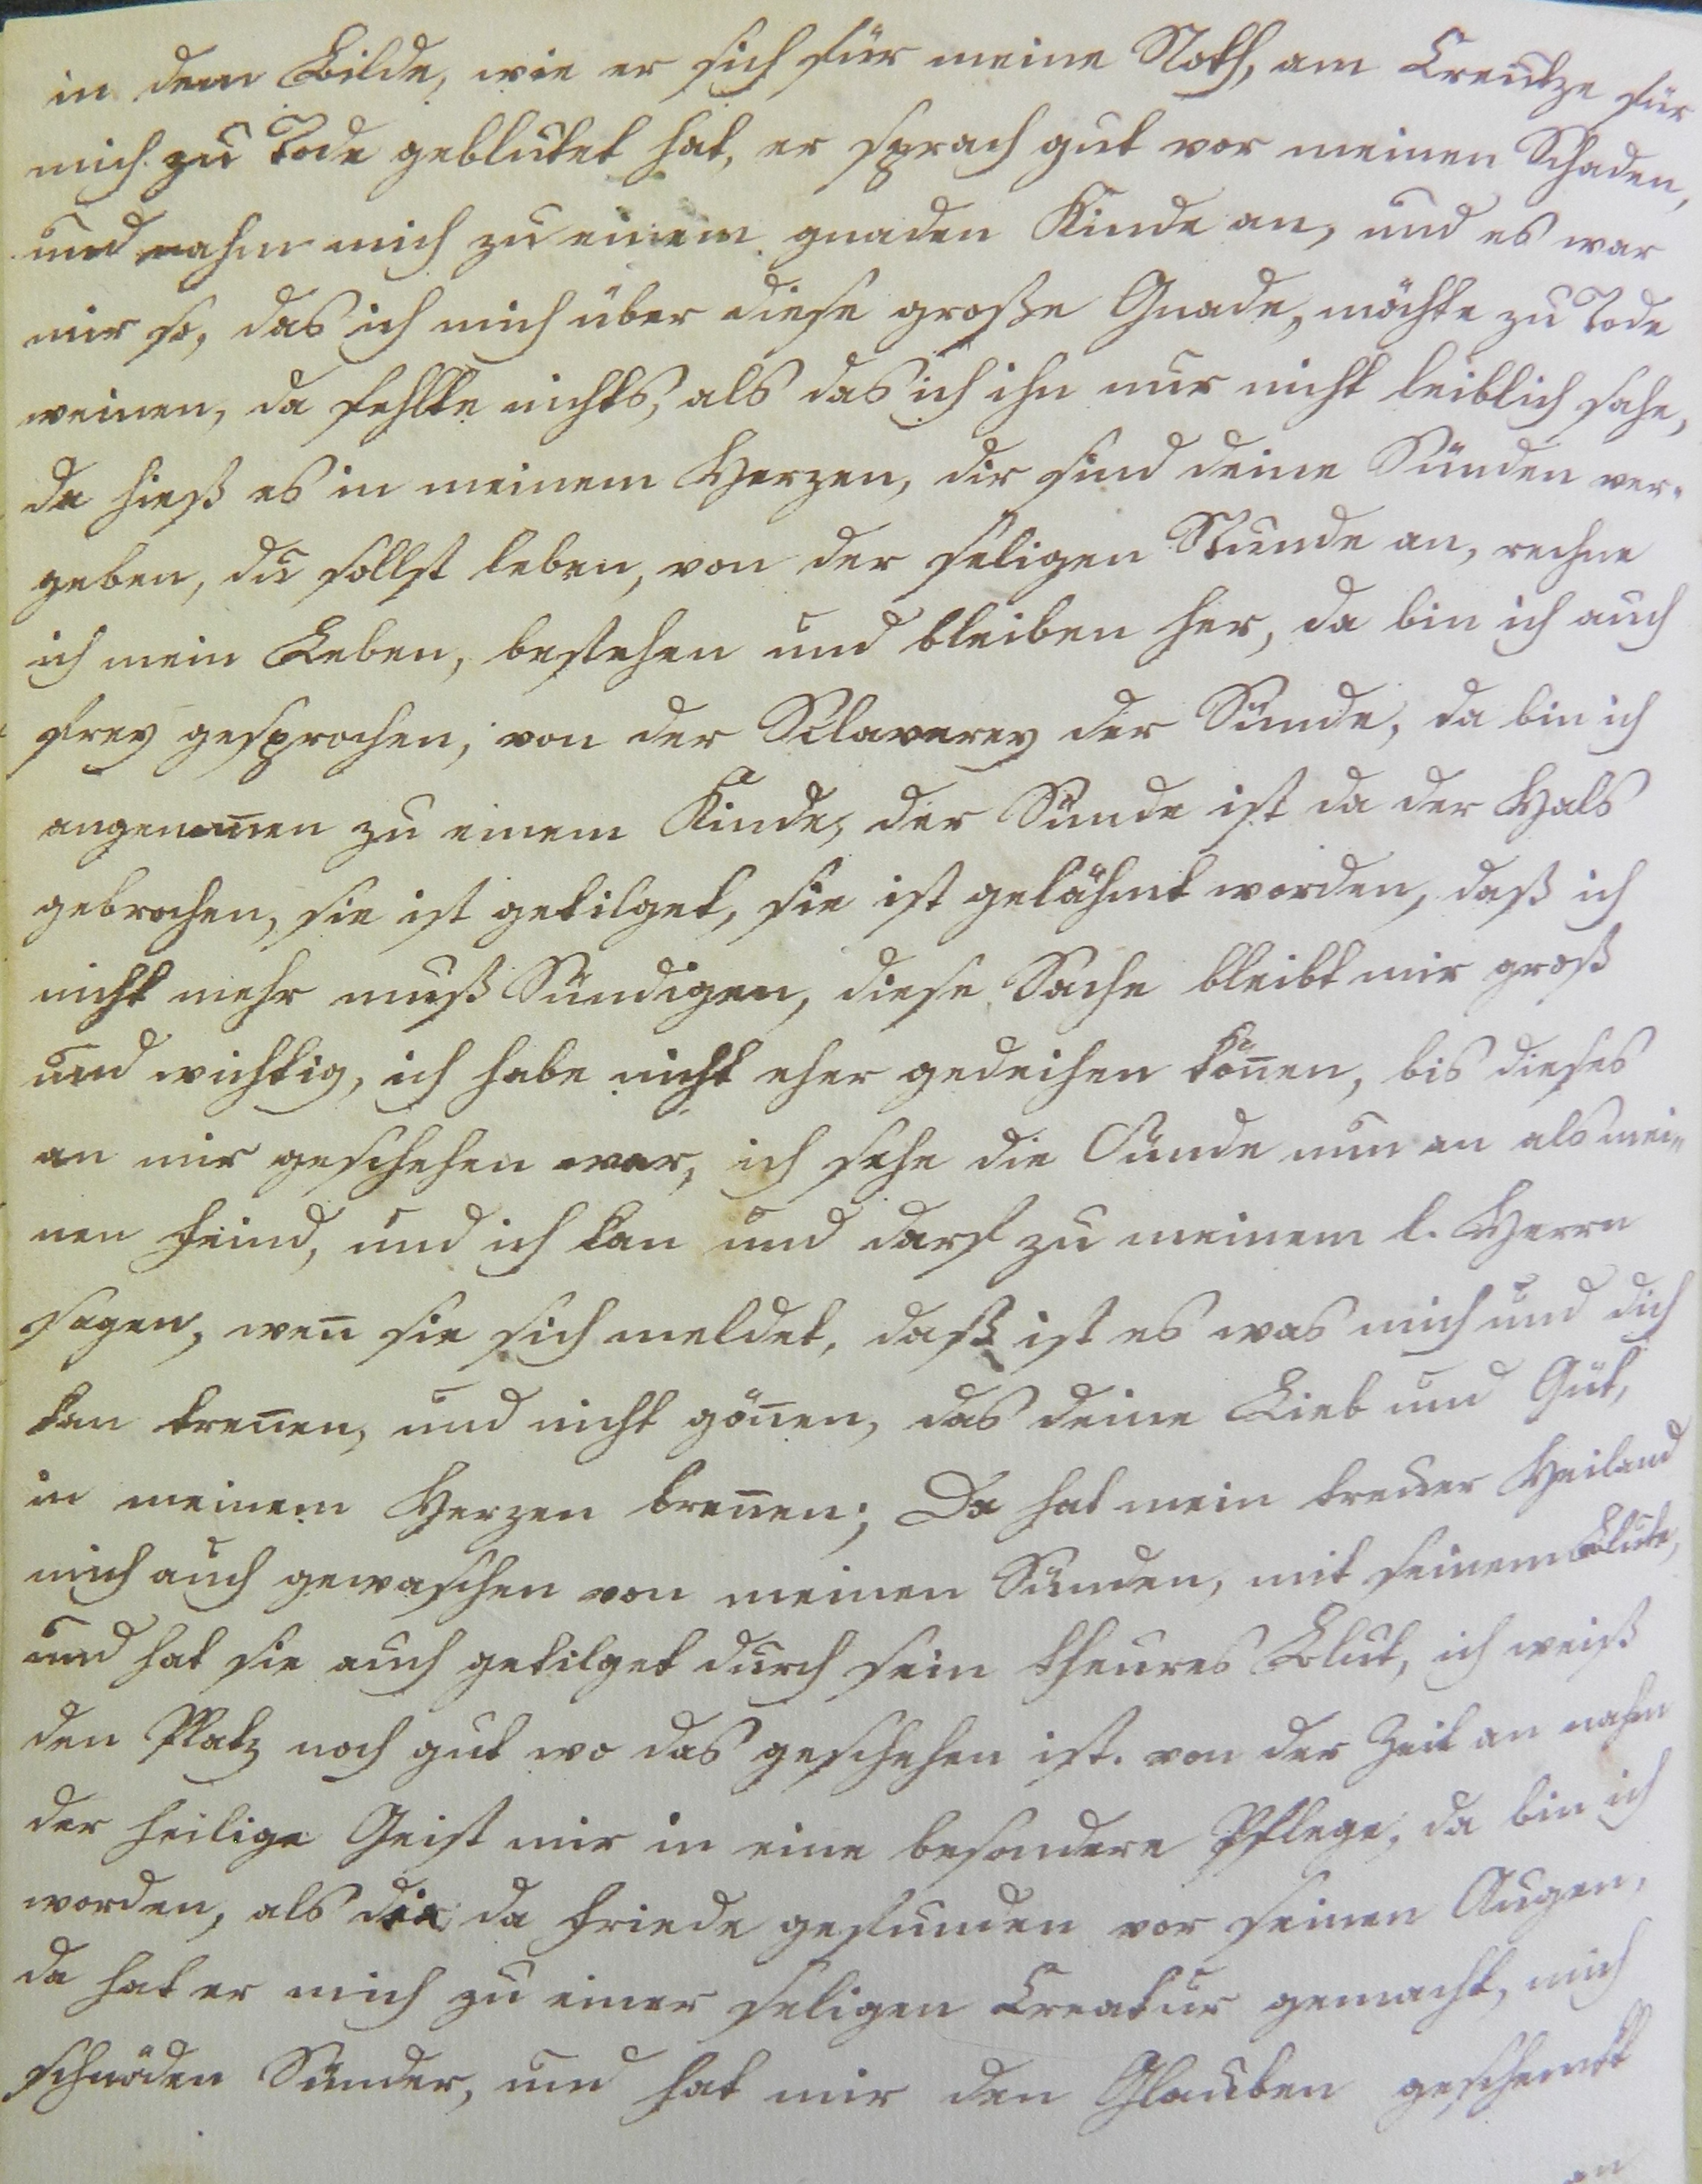 in dem Bilde, wie er sich für meine Noth, am Creutze für
mich zu Tode geblutet hat, er sprach gut vor meinen Schaden,
und nahm mich zu einem gnaden Kinde an, und es war
mir so, das ich mich über diese große Gnade, möchte zu Tode
weinen, da fehlte nichts, als das ich ihn nur nicht leiblich sahe,
da hieß es in meinem Herzen, dir sind deine Sünden ver-
geben, du sollst leben, von der seligen Stunde an, rechne
ich mein Leben, bestehen und bleiben her, da bin ich auch
frey gesprochen, von der Sclaverey der Sünde, da bin ich
angenom̅en zu einem Kinde, der Sünde ist da der Hals
gebrochen, sie ist getilget, sie ist gelähmt worden, daß ich
nicht mehr muß Sündigen, diese Sache bleibt mir groß
und wichtig, ich habe nicht eher gedeihen kön̅en, bis dieses
an mir geschehen war, ich sehe die Sünde nun an als mei-
nen Feind, und ich kan und darf zu meinem l. Herrn
sagen, wen̅ sie sich meldet, daß ist es was mich und dich
kan tren̅en, und nicht gön̅en, das deine Lieb und Güt,
in meinem Herzen bren̅en; Da hat mein treuer Heiland
mich auch gewaschen von meinen Sünden, mit seinem Blute,
und hat sie auch getilget durch sein theures Blut, ich weiß
den Platz noch gut wo das geschehen ist. von der Zeit an nahm
der heilige Geist mir in eine besondere Pflege, da bin ich
worden, als die da Friede gefunden vor seinen Augen,
da hat er mich zu einer seligen Creatur gemacht, mich
schnöden Sünder, und hat mir den Glauben geschenckt